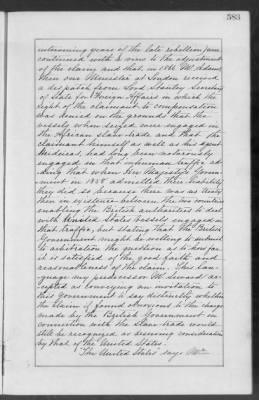 583
intervening years of the late rebellion, were
continued with a view to the adjustment
of the claim and that in 1866 Mr. Adams
then our Minister at London received
a despatch from Lord Stanley Secretary
of State for Foreign Affairs in which the
right of the claimant to compensation
was denied on the grounds that the
vessels when seized were engaged in
the African slave-trade and that the
claimant himself as well as his agent
had long been notoriously
engaged in that inhuman traffic ad-
ding that when Her Majesty's Govern-
ment in 1858 admitted their liability
they did so because there was no treaty
then in existence between the two countries
enabling the British authorities to deal
with United States vessels engaged in
that traffic, but stating that the British
Government might be willing to submit
to arbitration the question as it does if
it is satisfied of the good faith and
reasonableness of the claim. This lan-
guage my predecessor Mr. Seward ac-
cepted as conveying an invitation to
this government to say distinctly whether
the claim if found obnoxious to the charge
made by the British Government in
connection with the slave-trade would
still be considered as deserving consideration
by that of the United States.
"The United States" says Mr.